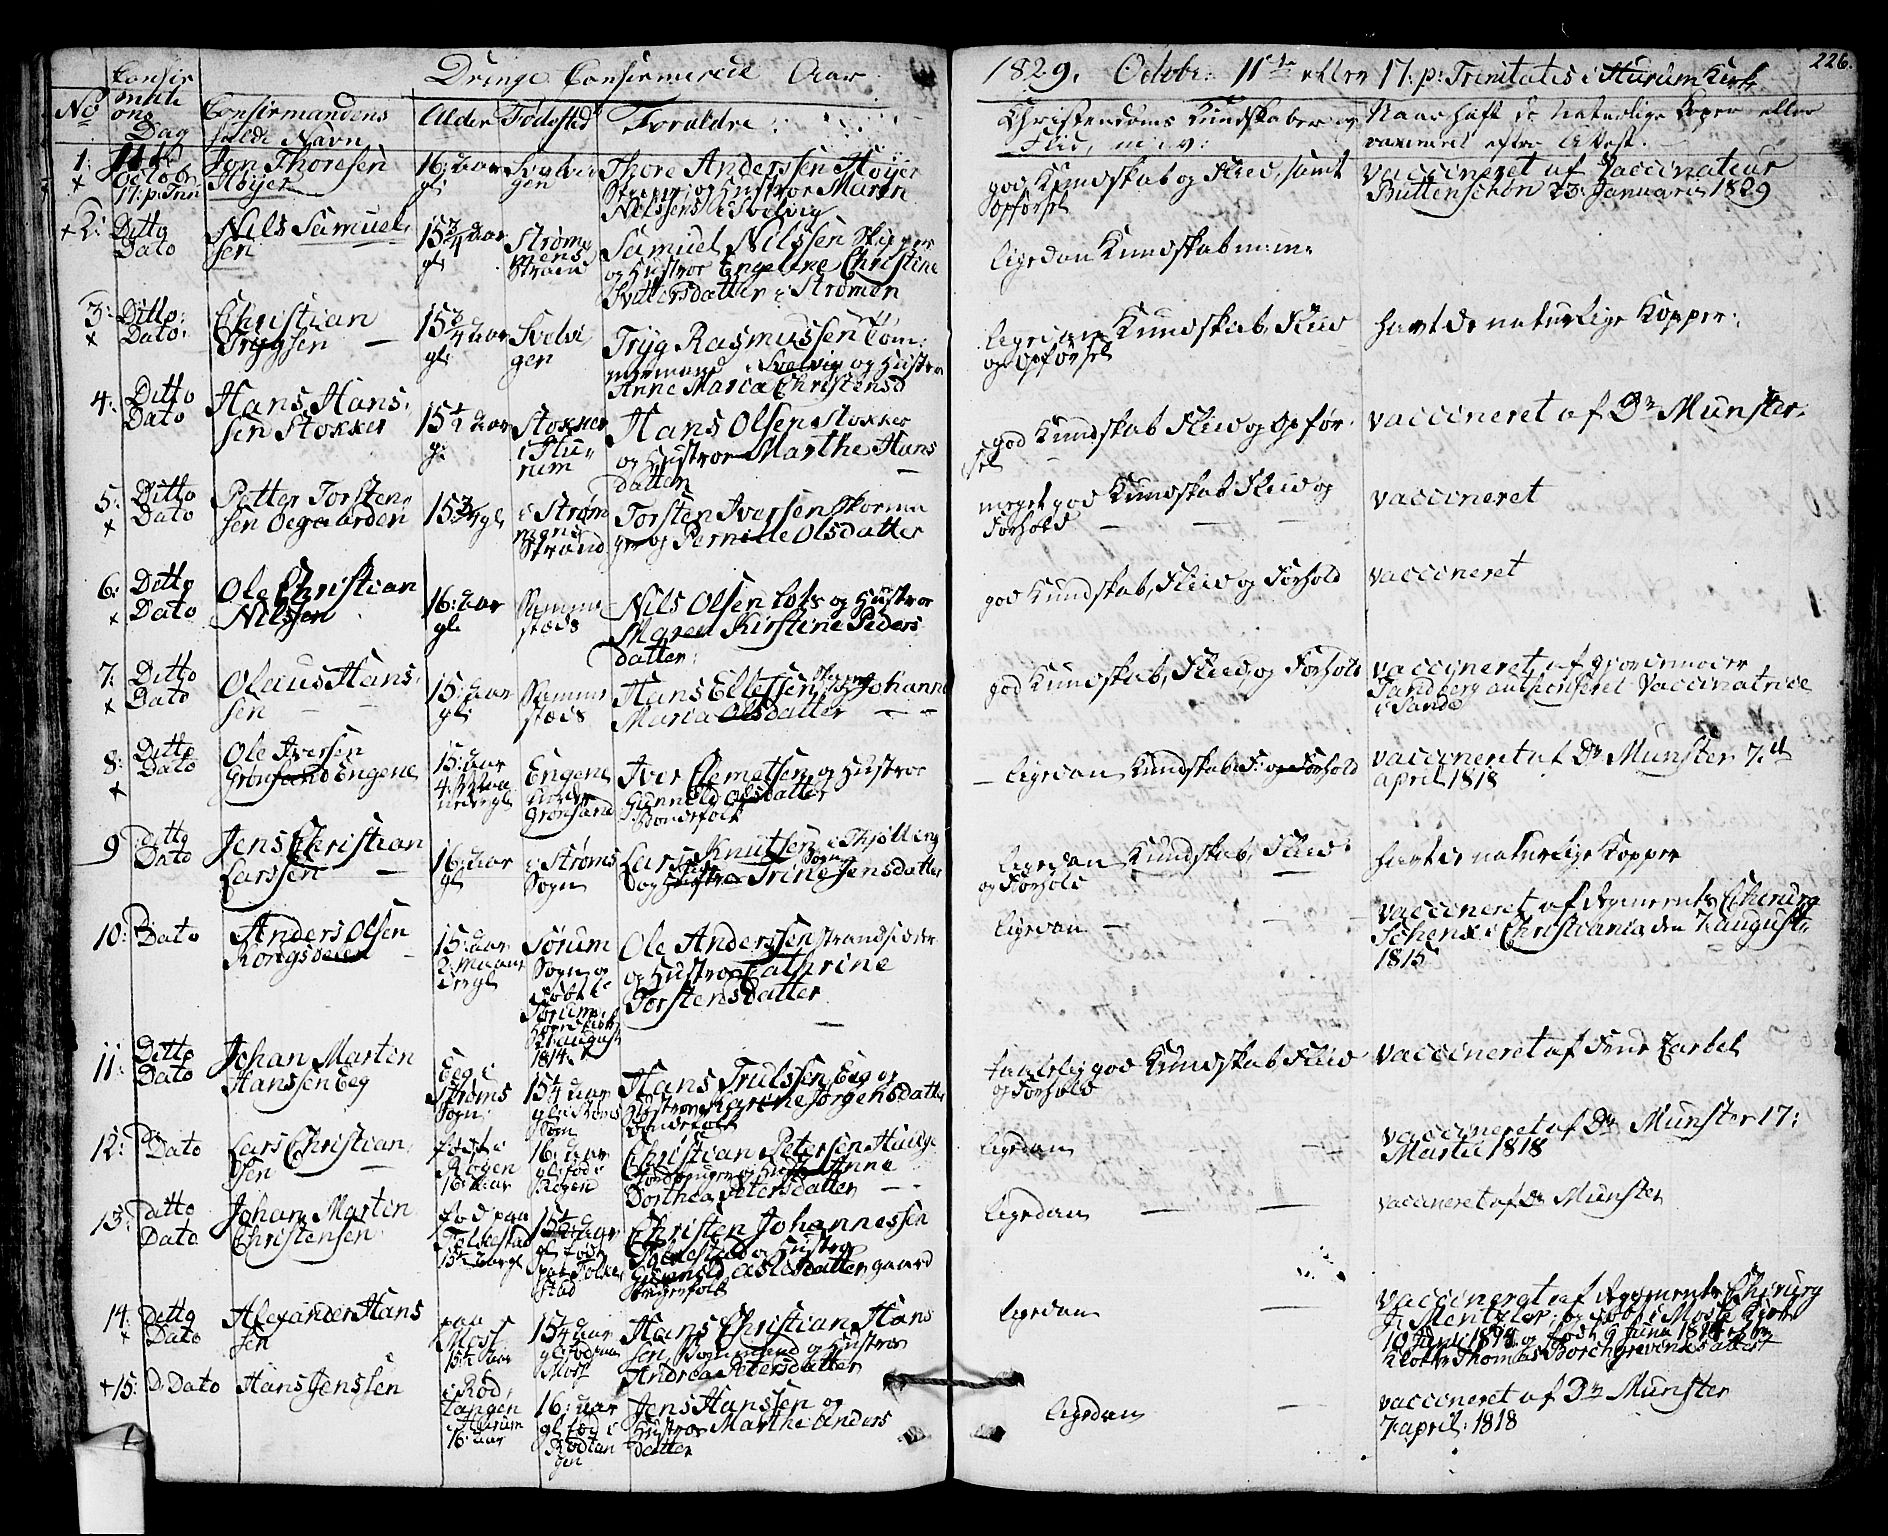 Drenge Confirmerede Aar 1829. Octobr: 11te eller 17: p: Trinitatis i Hurum Kirke
226.
No
Confir
mati
ons
Dag
Confirmandens
fulde Navn
Alder
Fødested
Forældre
Christendoms Kundskaber og
Flid, m: v:
Naar haft de naturlige Koper eller
vaccineret efter Attest.
1:
11te
Octobr.
17: p: Trin
Jon Thoresen
Høyer
16: Aar
gl:
Svelvi
gen
Thore Anderssen Høyer
Skipper og Hustroe Maren
Nilssens i Svelvig
god Kundskab og Fliid, samt
Opførsel
vaccineret af Vaccinateur
Buttenschøn 23: Januari 1829
2:
Ditto
Dato
Nils Samuel
sen
15 3/4 Aar
gl:
Strøm
mens
Strand
Samuel Nilssen Skipper
og Hustroe Engeline Christine
Syvertsdatter i Strømen
ligedan Kundskab m: m:
3:
Ditto:
Dato:
Christian
Trygsen
15 3/4 Aar
gl:
Svelvi
gen
Tryg Rasmussen Tøm:
mermand i Svelvig og Hustroe
Anne Maria Christensd
ligedan Kundskab, Fliid
og Opførsel
havt de naturlige Kopper:
4:
Ditto
Dato
Hans Hans:
sen Stokker
15 1/2 Aar
g:
Stokker
i Hu
rum
Hans Olsen Stokker
og Hustroe Marthe Hans
datter
god Kundskab Fliid og Opfør
sel
vaccineret af Dr Munster.
5:
Ditto
Dato
Petter Torsten
sen Oegaarden
15 3/4 gl
i Strøm
mens
Strand
Torsten Iversen Skoema
ger og Pernille Olsdatter
meget god Kundskab Fliid og
Forhold
vaccineret
6:
Ditto
Dato
Ole Christian
Nilssen
16: Aar
gl:
Samme
stæds
Nils Olsen Lots og Hustroe
Maren Kirstine Peders
datter:
god Kundskab, Fliid og Forhold
vaccineret
7:
Ditto
Dato
Olaus Hans:
sen
15: Aar
gl:
Samme
stæds
Hans Ellefsen Johanne
Maria Olsdatter
god Kundskab, Fliid og Forhold
vaccineret af Giordemoder
Sandberg authoriseret Vaccinatrice
i Sande
8:
Ditto
Dato
Ole Iversen
Grønsand Engene
15: Aar
Engene
under
Grønsand
Iver Clemetsen og Hustroe
Gunnild Olsdatter
Bondefolk
ligedan Kundskab F: og Forhold
vaccineret af Dr Munster 7: d
april 1818
9
Ditto
Dato
Jens Christian
Larssen
16: Aar
gl
i Strøms
Sogn
Lars Knutsen i Thjølling
Sogn
og Trine Jensdatter
ligedan Kundskab, Fliid
og Forhold
havt de naturlige Kopper
10:
Dato
Anders Olsen
Kongsdelen
15: Aar
2: Maane
der gl
Sørum
Sogn og
døbt i
Sørums
21 August
1814.
Ole Anderssen Strandsidder
og Hustroe Cathrine
Torstensdatter
ligedan
vaccineret af Regiments Chirurg
Schenx i Christiania den 7 august
1815
11:
Ditto
Dato
Johan Marten
Hanssen Eeg
Eeg i
Strøms
Sogn:
15 1/4 Aar
gl: i Strøms
Sogn
Hans Trulssen Eeg og
Hustroe Karine Jørgensdatter
Bondefolk
taalelig god Kundskab Fliid
og Forhold
vaccineret af Frue Zarbel
12:
Do
Dato
Lars Christian
sen
født i
Røgen
16 Aar
16: Aar
gl: fød i
Røgen
Christian Petersen Hauge
Jordbruger og Hustroe Anne
Dorthea Petersdatter
ligedan
vaccineret af Dr Munster 17:
Martii 1818
13:
Ditto
Dato
Johan Marten
Christensen
fød paa
Tolvestad
15 1/2 Aar gl
15 1/2 Aar
gl: født
paa Tolve
stad
Christen Johannessen
Tolvestad og Hustroe
Gunnild Aslesdatter gaard
brugerfolk
ligedan
vaccineret af Dr Munster
14:
Ditto
Dato
Alexander Hans
sen
paa
Moss
15 1/4 Aar
15 1/4 Aar
gl: fød paa
Moss
Hans Christian Hans
sen Bogmand og Hustroe
Andrea Petersdatter
ligedan
vaccineret af Regiments Chirurg
J: Mentzler, og døbt i Moss Kirke
10 Junii 1814 og født 9 Juni 1814 efter
Klokker Thomas Borchgrevinks attest
15:
D: Dato
Hans Jenssen
i Rød
tangen
i Hurum
16: Aar
16: Aar
gl: fød i
Rødtan
gen
Jens Hanssen og
Hustroe Marthe Anders
datter
ligedan
vaccineret af Dr Munster
7 april: 1818